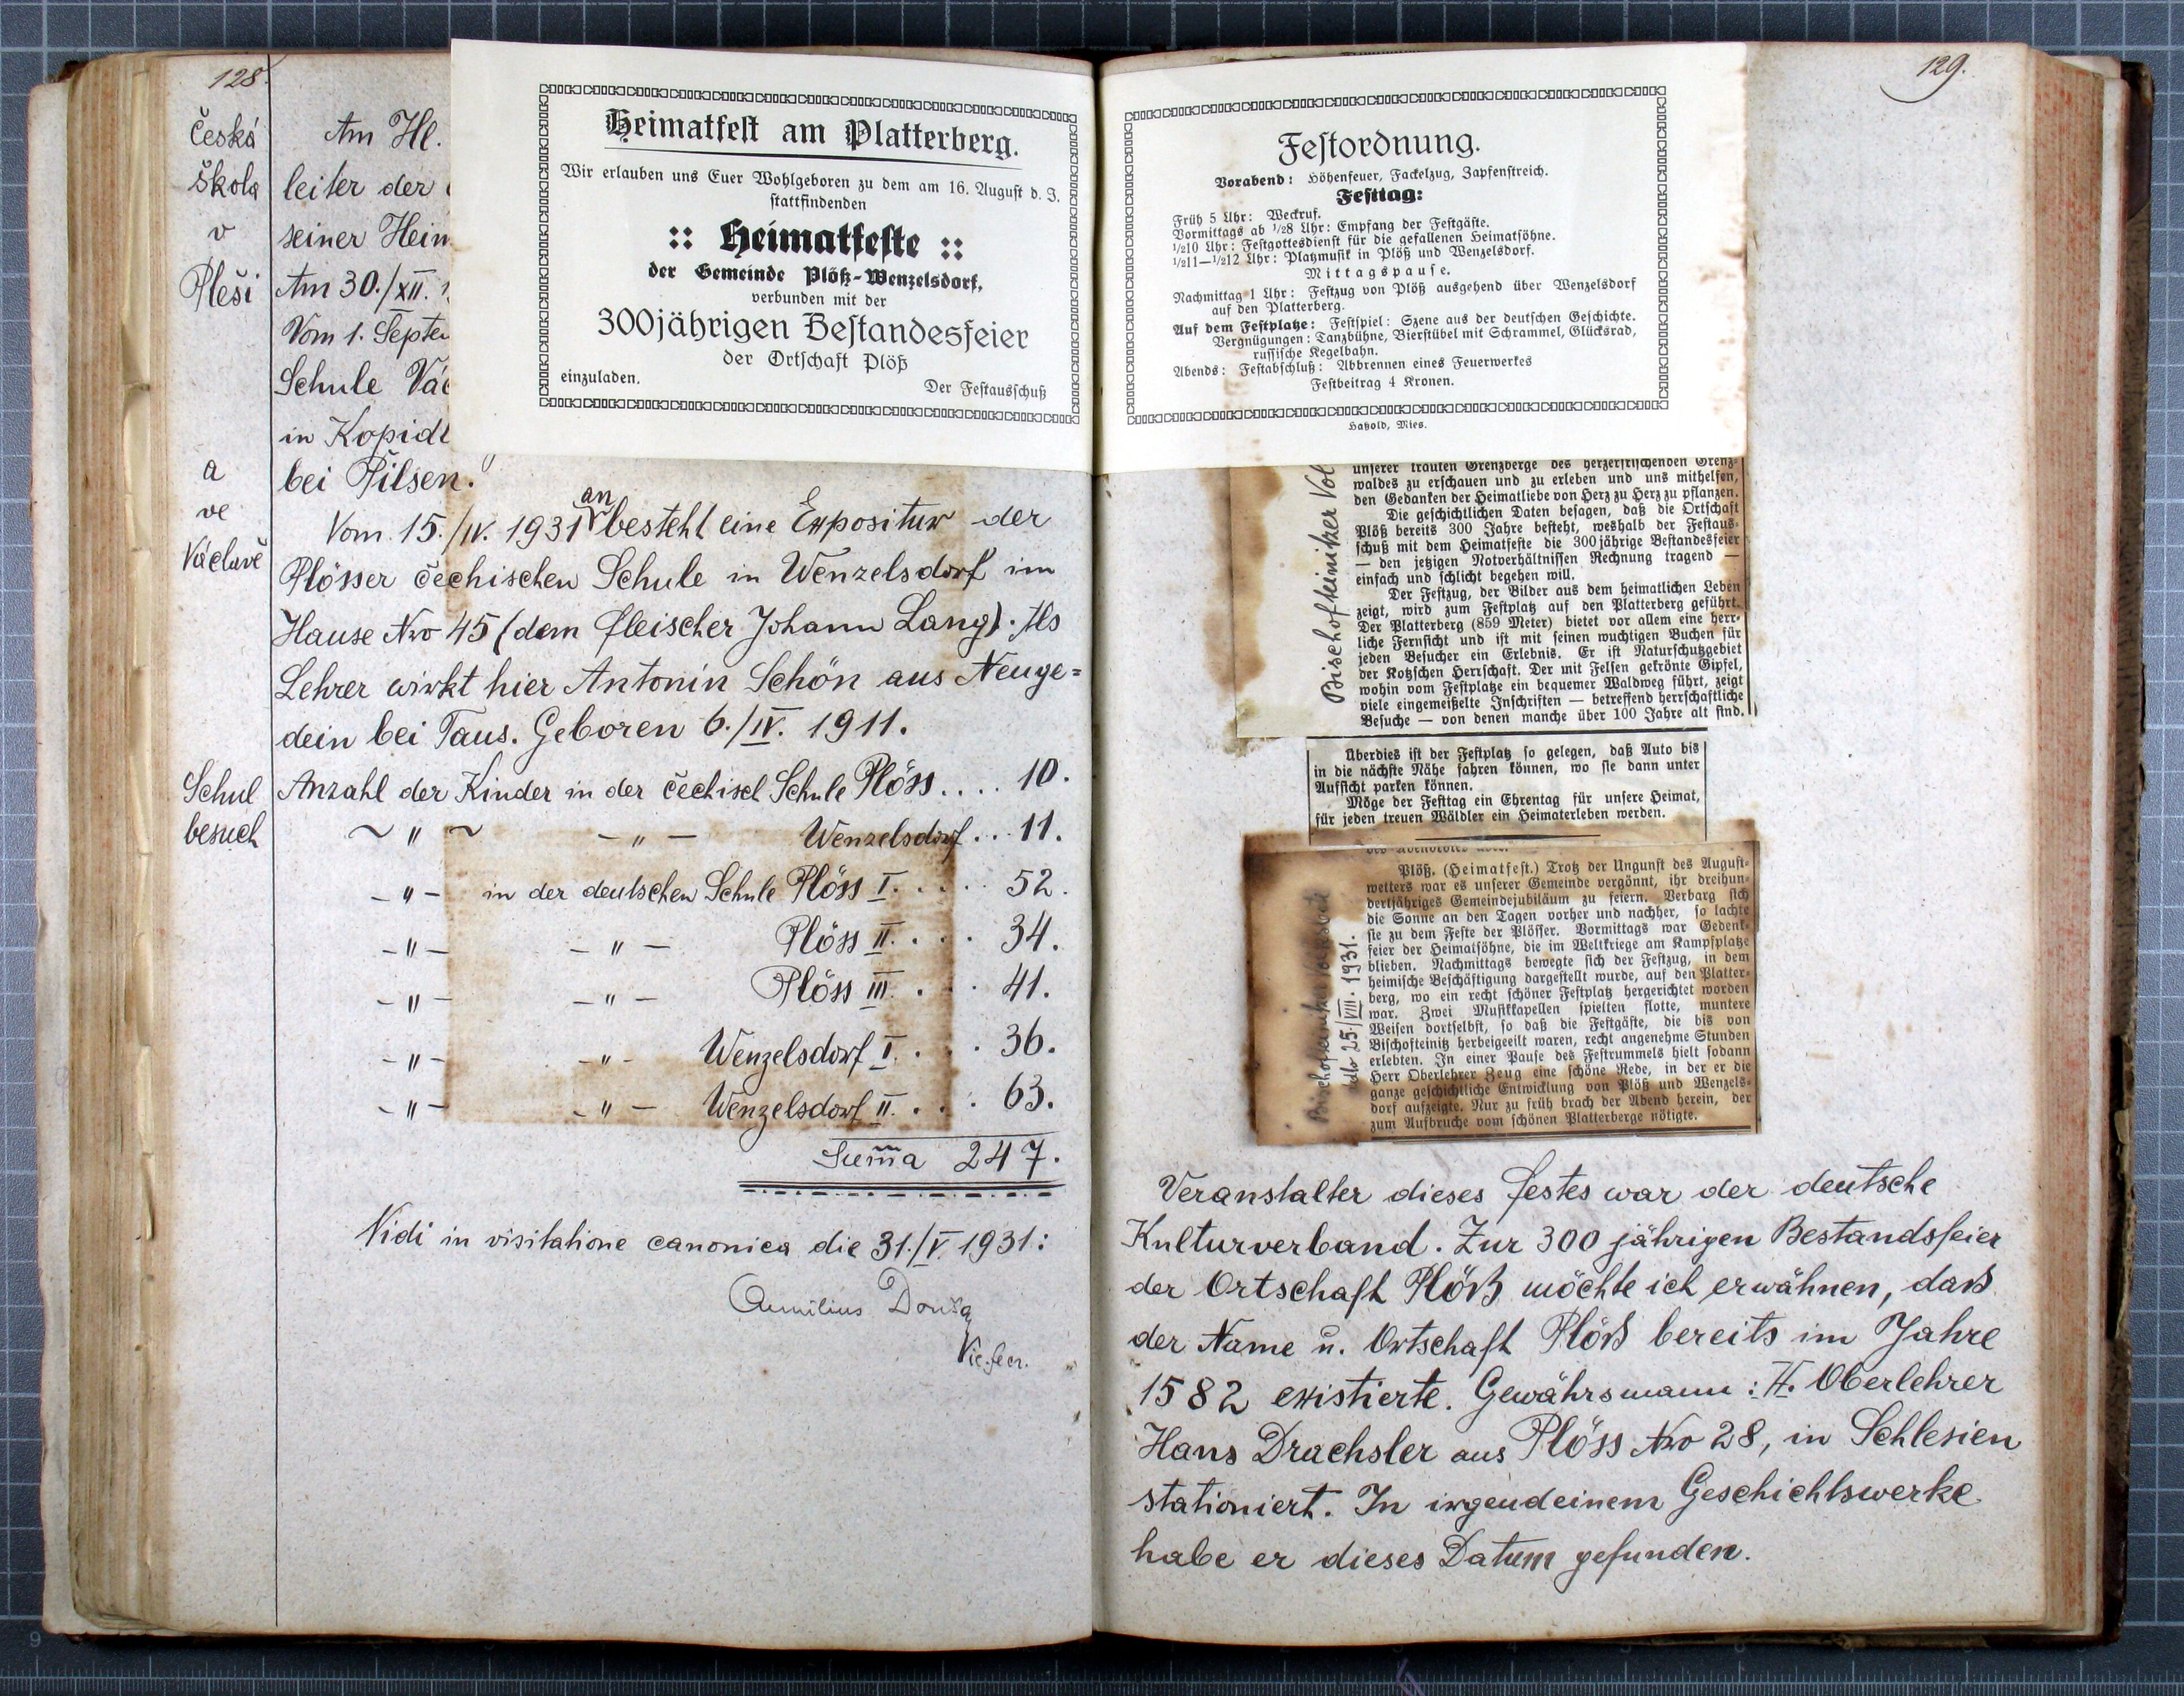 128.
Česká
škola
v
Pleši
a
ve
Václavě
Schul
besuch
Am Hl.
leiter der
seiner Heim
Am 30./XII.
Vom 1. Septem
Schule Vác
in Kopidl
bei Pilsen.
Vom 15./IV. 1931 an besteht eine Expositur der
Plösser čechischen Schule in Wenzelsdorf im
Hause Nro 45 (dem Fleischer Johann Lang). Als
Lehrer wirkt hier Antonín Schön aus Neuge=
dein bei Taus. Geboren 6./IV. 1911.
Anzahl der Kinder in der čechisch Schule Plöss.... 10.
~ " ~ - " - Wenzelsdorf... 11.
- " - in der deutschen Schule Plöss I. .... 52.
- " - - " - Plöss II. ... 34.
- " - - " - Plöss III. ... 41.
- " - - " - Wenzelsdorf I. ... 36.
- " - - " - Wenzelsdorf II. ... 63.
Sum̅a 247.
Vidi in visitatione canonica die 31./V. 1931:
Aemilius Douša
Vic. secr.
Heimatfest am Platterberg.
Wir erlauben uns Euer Wohlgeboren zu dem am 16. August d. J.
stattfindenden
:: Heimatfeste ::
der Gemeinde Plöß-Wenzelsdorf,
verbunden mit der
300jährigen Bestandesfeier
der Ortschaft Plöß
einzuladen.
Der Festausschuß
129.
Festordnung.
Vorabend: Höhenfeuer, Fackelzug, Zapfenstreich.
Festtag:
Früh 5 Uhr: Weckruf.
Vormittags ab 1/28 Uhr: Empfang der Festgäste.
1/210 Uhr: Festgottesdienst für die gefallenen Heimatsöhne.
1/211—1/212 Uhr: Platzmusik in Plöß und Wenzelsdorf.
Mittagspause.
Nachmittag 1 Uhr: Festzug von Plöß ausgehend über Wenzelsdorf
auf den Platterberg.
Auf dem Festplatze: Festspiel: Szene aus der deutschen Geschichte.
Vergnügungen: Tanzbühne, Bierstübel mit Schrammel, Glücksrad,
russische Kegelbahn.
Abends: Festabschluß: Abbrennen eines Feuerwerkes
Festbeitrag 4 Kronen.
Hatzold, Mies.
Bischofteinitzer Vol
unserer trauten Grenzberge des herzerfrischenden Grenz-
waldes zu erschauen und zu erleben und uns mithelfen,
den Gedanken der Heimatliebe von Herz zu Herz zu pflanzen.
Die geschichtlichen Daten besagen, daß die Ortschaft
Plöß bereits 300 Jahre besteht, weshalb der Festaus-
schuß mit dem Heimatfeste die 300jährige Bestandesfeier
— den jetzigen Notverhältnissen Rechnung tragend —
einfach und schlicht begehen will.
Der Festzug, der Bilder aus dem heimatlichen Leben
zeigt, wird zum Festplatz auf den Platterberg geführt.
Der Platterberg (859 Meter) bietet vor allem eine herr-
liche Fernsicht und ist mit seinen wuchtigen Buchen für
jeden Besucher ein Erlebnis. Er ist Naturschutzgebiet
der Kotzschen Herrschaft. Der mit Felsen gekrönte Gipfel,
wohin vom Festplatze ein bequemer Waldweg führt, zeigt
viele eingemeißelte Inschriften — betreffend herrschaftliche
Besuche — von denen manche über 100 Jahre alt sind.
Überdies ist der Festplatz so gelegen, daß Auto bis
in die nächste Nähe fahren können, wo sie dann unter
Aufsicht parken können.
Möge der Festtag ein Ehrentag für unsere Heimat,
für jeden treuen Wäldler ein Heimaterleben werden.
Bischofteinitzer Volksbote
dtto 25./VIII. 1931.
Plöß. (Heimatfest.) Trotz der Ungunst des August-
wetters war es unserer Gemeinde vergönnt, ihr dreihun-
dertjähriges Gemeindejubiläum zu feiern. Verbarg sich
die Sonne an den Tagen vorher und nachher, so lachte
sie zu dem Feste der Plösser. Vormittags war Gedenk-
feier der Heimatsöhne, die im Weltkriege am Kampfplatze
blieben. Nachmittags bewegte sich der Festzug, in dem
heimische Beschäftigung dargestellt wurde, auf den Platter-
berg, wo ein recht schöner Festplatz hergerichtet worden
war. Zwei Musikkapellen spielten flotte, muntere
Weisen dortselbst, so daß die Festgäste, die bis von
Bischofteinitz herbeigeeilt waren, recht angenehme Stunden
erlebten. In einer Pause des Festrummels hielt sodann
Herr Oberlehrer Zeug eine schöne Rede, in der er die
ganze geschichtliche Entwicklung von Plöß und Wenzels-
dorf aufzeigte. Nur zu früh brach der Abend herein, der
zum Aufbruche vom schönen Platterberge nötigte.
Veranstalter dieses Festes war der deutsche
Kulturverband. Zur 300 jährigen Bestandsfeier
der Ortschaft Plöß möchte ich erwähnen, daß
der Name u. Ortschaft Plöß bereits im Jahre
1582 existierte. Gewährsmann: H. Oberlehrer
Hans Drachsler aus Plöss Nro 28, in Schlesien
stationiert. In irgendeinem Geschichtswerke
habe er dieses Datum gefunden.
9